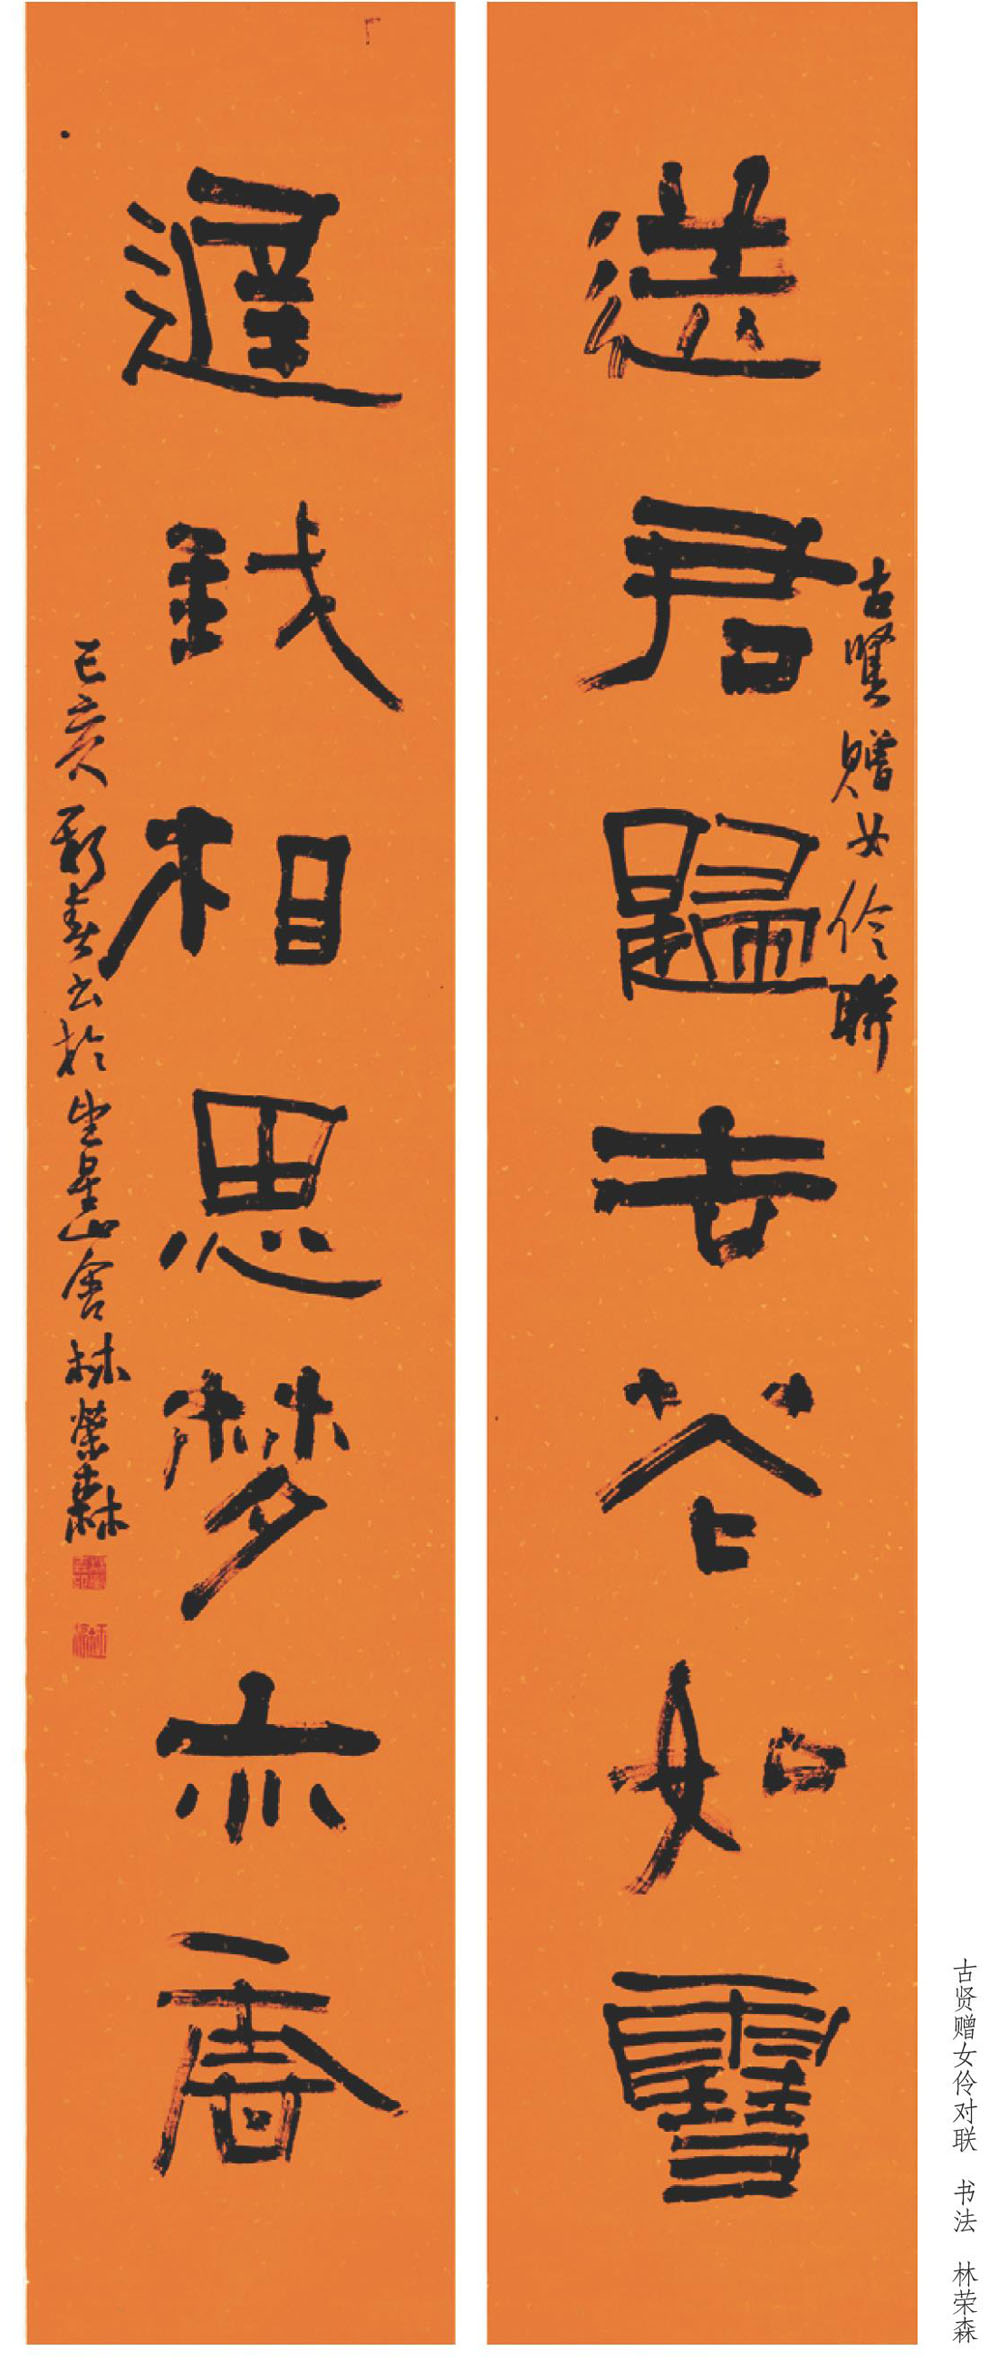 古賢贈女伶聯
送君歸去花如雪
遲我相思夢亦香
己亥新春書於山舍林榮森
古贤赠女伶对联 书法 林荣森